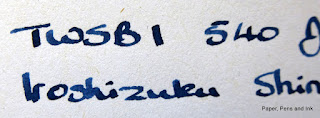 TWSBI 540
Iroshizuku Shin
Paper, Pens and Ink